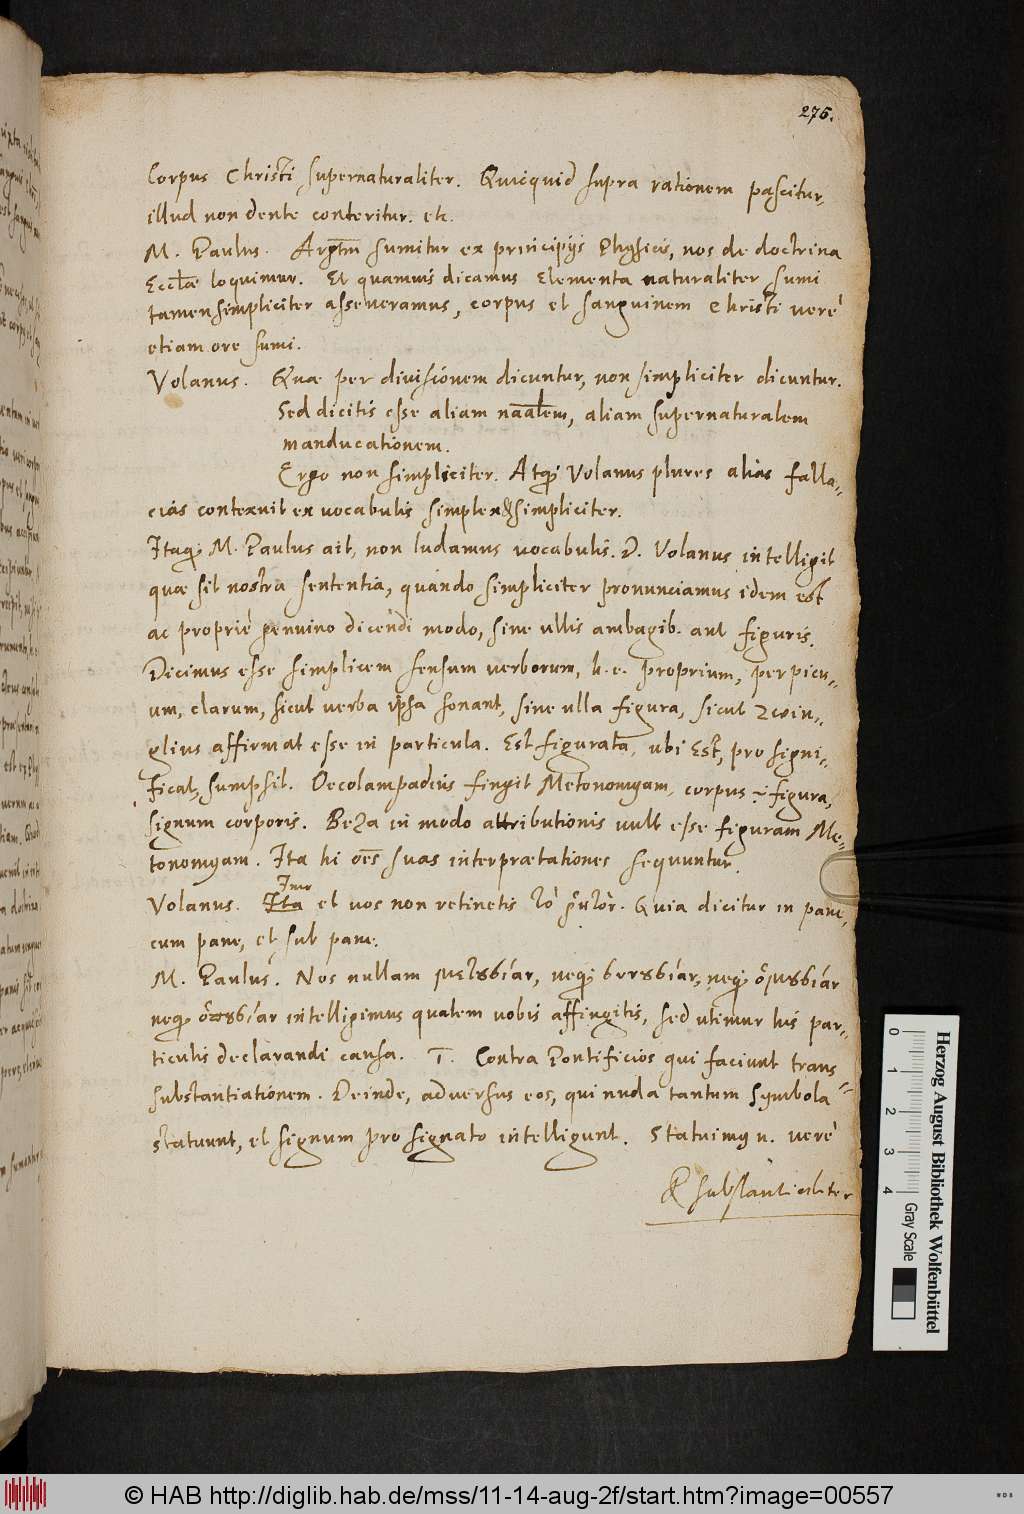 275.
Corpus Christi supernaturaliter. Quicquid supra rationem pascitur,
illud non dente conteritur. etc.
M. Paulus. Argtm sumitur ex principijs Physicis, nos de doctrina
Eccliæ loquimur. Et quamuis dicamus Elementa naturaliter sumi
tamen simpliciter asseueramus, corpus et sanguinem Christi verè
etiam ore sumi.
Volanus. Quæ per diuisionem dicuntur, non simpliciter dicuntur.
Sed dicitis esse aliam naalem, aliam supernaturalem
manducationem.
Ergo non simpliciter. Atq Volanus plures alias falla-
cias contexuit ex vocabulis simplex & simpliciter.
Itaq M. Paulus ait, non ludamus vocabulis. D. Volanus intelligit
quæ sit nostra sententia, quando simpliciter pronunciamus idem est
ac propriè genuino dicendi modo, sine ullis ambagib. aut figuris.
Dicimus esse simplicem sensum verborum, h. e. proprium, perpicu-
um, clarum, sicut verba ipsa sonant, sine ulla figura, sicut Zwin-
glius affirmat esse in particula. Est figurata, ubi Est, pro signi-
ficat, sumpsit. Oecolampadius fingit Metonomyam, corpus .i. figura,
signum corporis. Beza in modo attributionis vult esse figuram Me-
tonomyam. Ita hi oēs suas interpretationes sequuntur.
Volanus. Ita Imo et vos non retinetis τὸ ῥητὸν. Quia dicitur in pane,
cum pane, et sub pane.
M. Paulus. Nos nullam μετουσίαν, neq συνουσίαν, neq ὁμουσίαν
neq intelligimus qualem vobis affingitis, sed utimur his par-
ticulis declarandi causa. I. Contra Pontificios qui faciunt trans-
substantiationem. Deinde, adversus eos, qui nuda tantum Symbola
statuunt, et signum pro signato intelligunt. Statuimus n. verè
& substantialiter
Herzog August Bibliothek Wolfenbüttel
0 1 2 3 4
Gray Scale
© HAB http://diglib.hab.de/mss/11-14-aug-2f/start.htm?image=00557